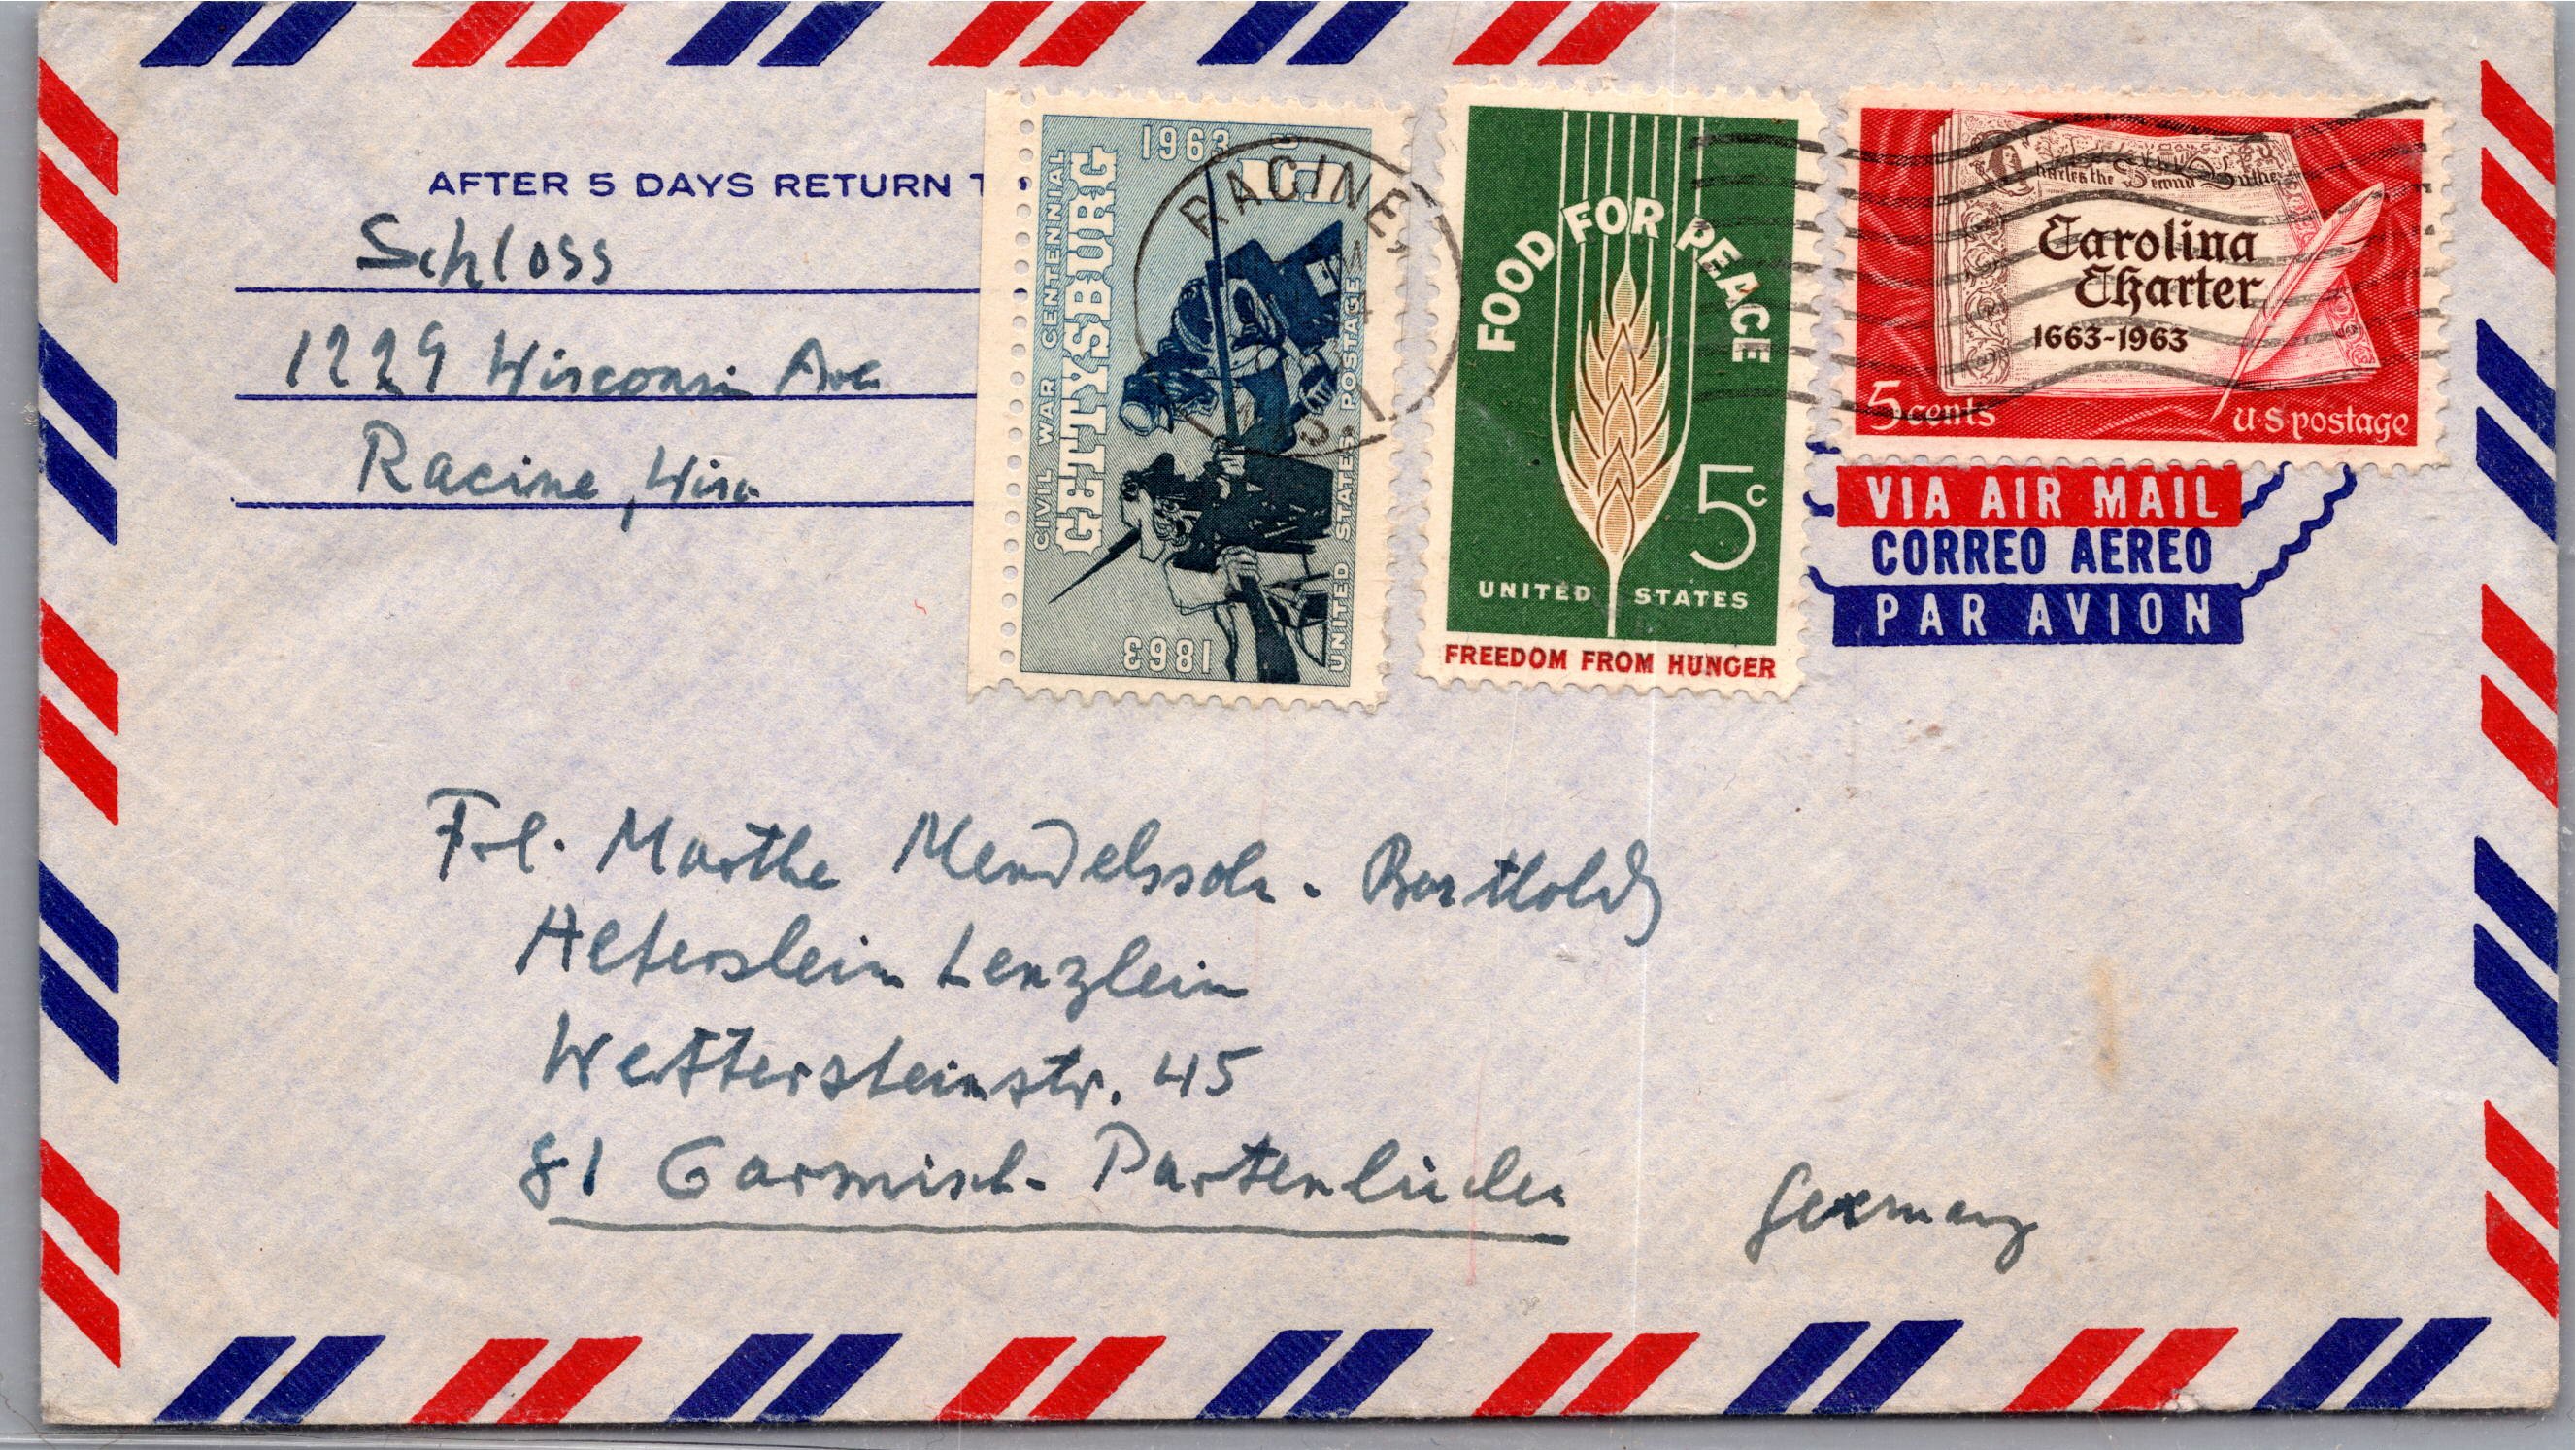 AFTER 5 DAYS RETURN T
Schloss
1229 Wisconsin Ave
Racine, Wisc
1963
5
CIVIL WAR CENTENNIAL
GETTYSBURG
UNITED STATES POSTAGE
1863
RACINE,
FOOD FOR PEACE
5c
UNITED STATES
FREEDOM FROM HUNGER
Charles the Second
Carolina
Charter
1663-1963
5 cents
U·S postage
VIA AIR MAIL
CORREO AEREO
PAR AVION
Frl. Marthe Mendelssohn-Bartholdy
Altersheim Lenzheim
Wettersteinstr. 45
81 Garmisch-Partenkirchen
Germany